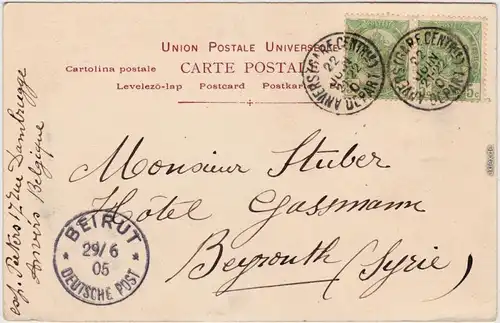 UNION POSTALE UNIVERSELLE
Cartolina postale CARTE POSTALE
Levelező-lap Postcard Postkarte
ANVERS (GARE CENTRALE)
DÉPART
22
JUIN
ANVERS (GARE CENTRALE)
DÉPART
JUIN
5c
Monsieur Stuber
Hôtel Gassmann
Beyrouth (Syrie)
BEIRUT
29/6
05
* DEUTSCHE POST *
exp. Peeters 17 rue Dambrugge
Anvers Belgique